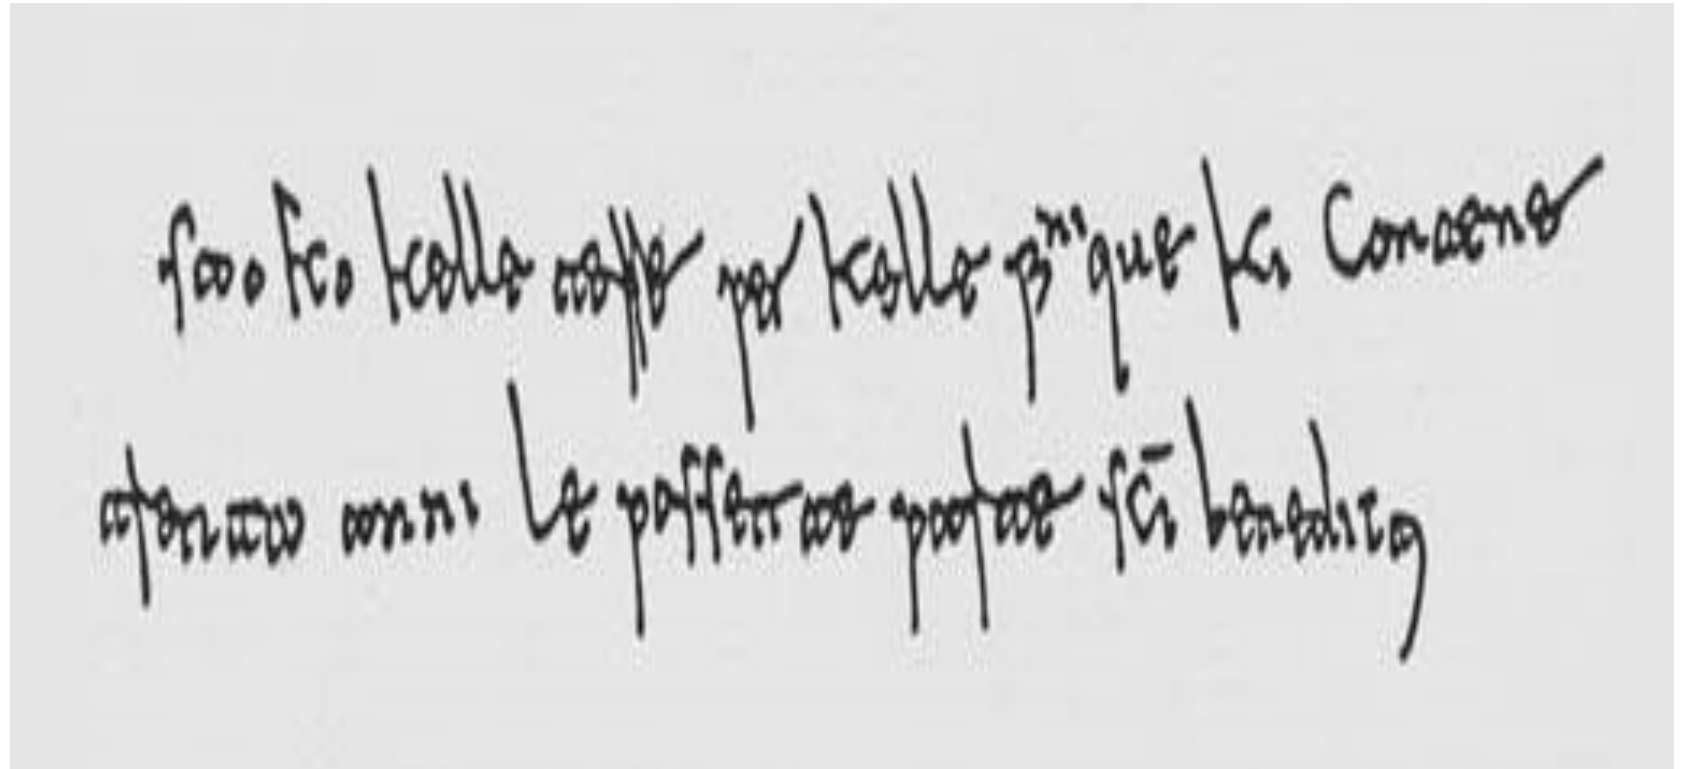 sao ko kelle terre per kelle fini que ki contene
trenta anni le possette parte sc̄i benedicti